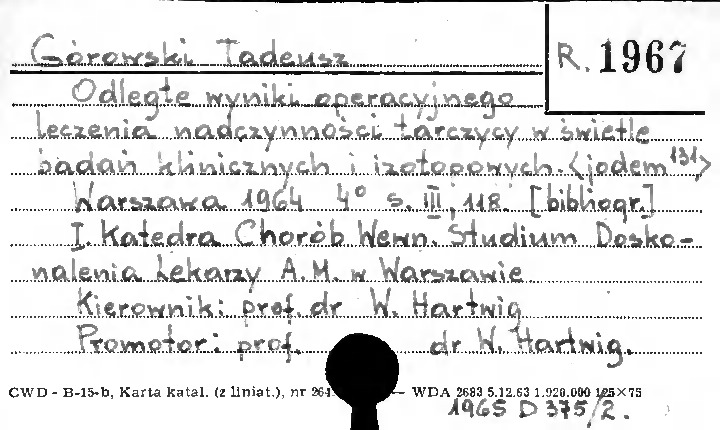 Górowski Tadeusz
R. 1967
Odległe wyniki operacyjnego
leczenia nadczynności tarczycy w świetle
badań klinicznych i izotopowych. <jodem 131>
Warszawa 1964 4° s. III, 118. [bibliogr.]
I. Katedra Chorób Wewn. Studium Dosko-
nalenia Lekarzy A.M. w Warszawie
Kierownik: prof. dr W. Hartwig
Promotor: prof. dr W. Hartwig.
CWD - B-15-b, Karta katal. (z liniat.), nr 264 — WDA 2683 5.12.63 1.920.000 125×75
1965 D 375/2.